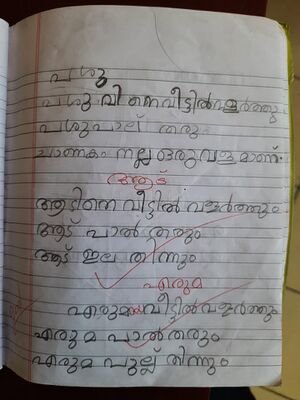 പശു
പശുവിനെ വീട്ടിൽ വളർത്തും
പശു പാല് തരും
ചാണകം നല്ല ഒരു വളമാണ്.
ആട്
ആടിനെ വീട്ടിൽ വളർത്തും
ആട് പാൽ തരും
ആട് ഇല തിന്നും
എരുമ
എരുമയെ വീട്ടിൽ വളർത്തും
എരുമ പാൽ തരും
എരുമ പുല്ല് തിന്നും